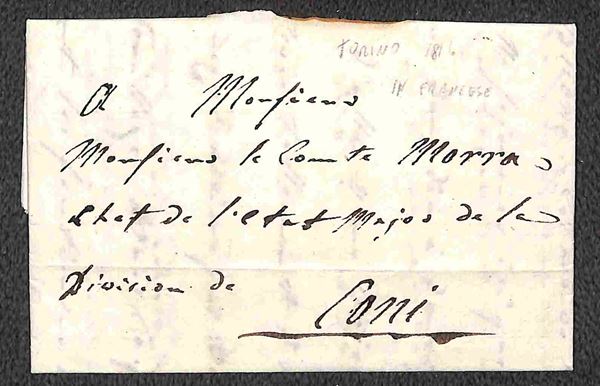 TORINO 1816
IN FRANCESE
A Monsieur
Monsieur le Comte Morra
Chef de l'Etat Major de la
Division de
Coni